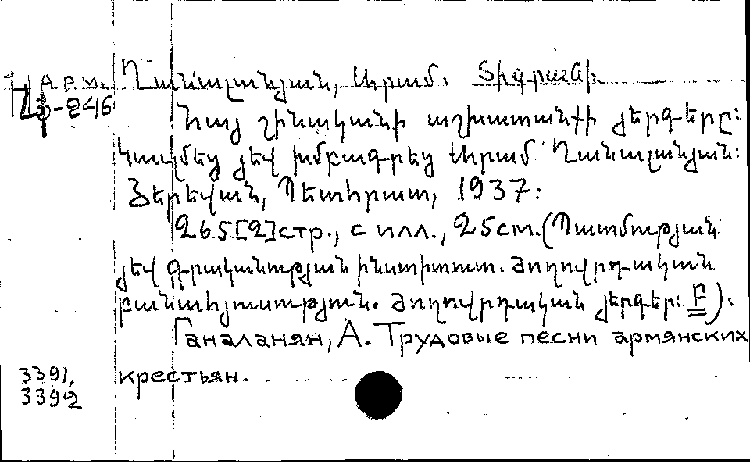 Арм. Ղանալանյան, Արամ. Տիգրանի
Հայ շինականի աշխատանքի յերգերը:
Կազմեց յեվ խմբագրեց Արամ Ղանալանյան:
Յերեվան, Պետհրատ, 1937:
265[2]стр., с илл., 25см. (Պատմության
յեվ գրականության ինստիտուտ. Ժողովրդական
բանահյուսություն. Ժողովրդական յերգեր: Բ):
Ганаланян, А. Трудовые песни армянских
3391, крестьян.
3392